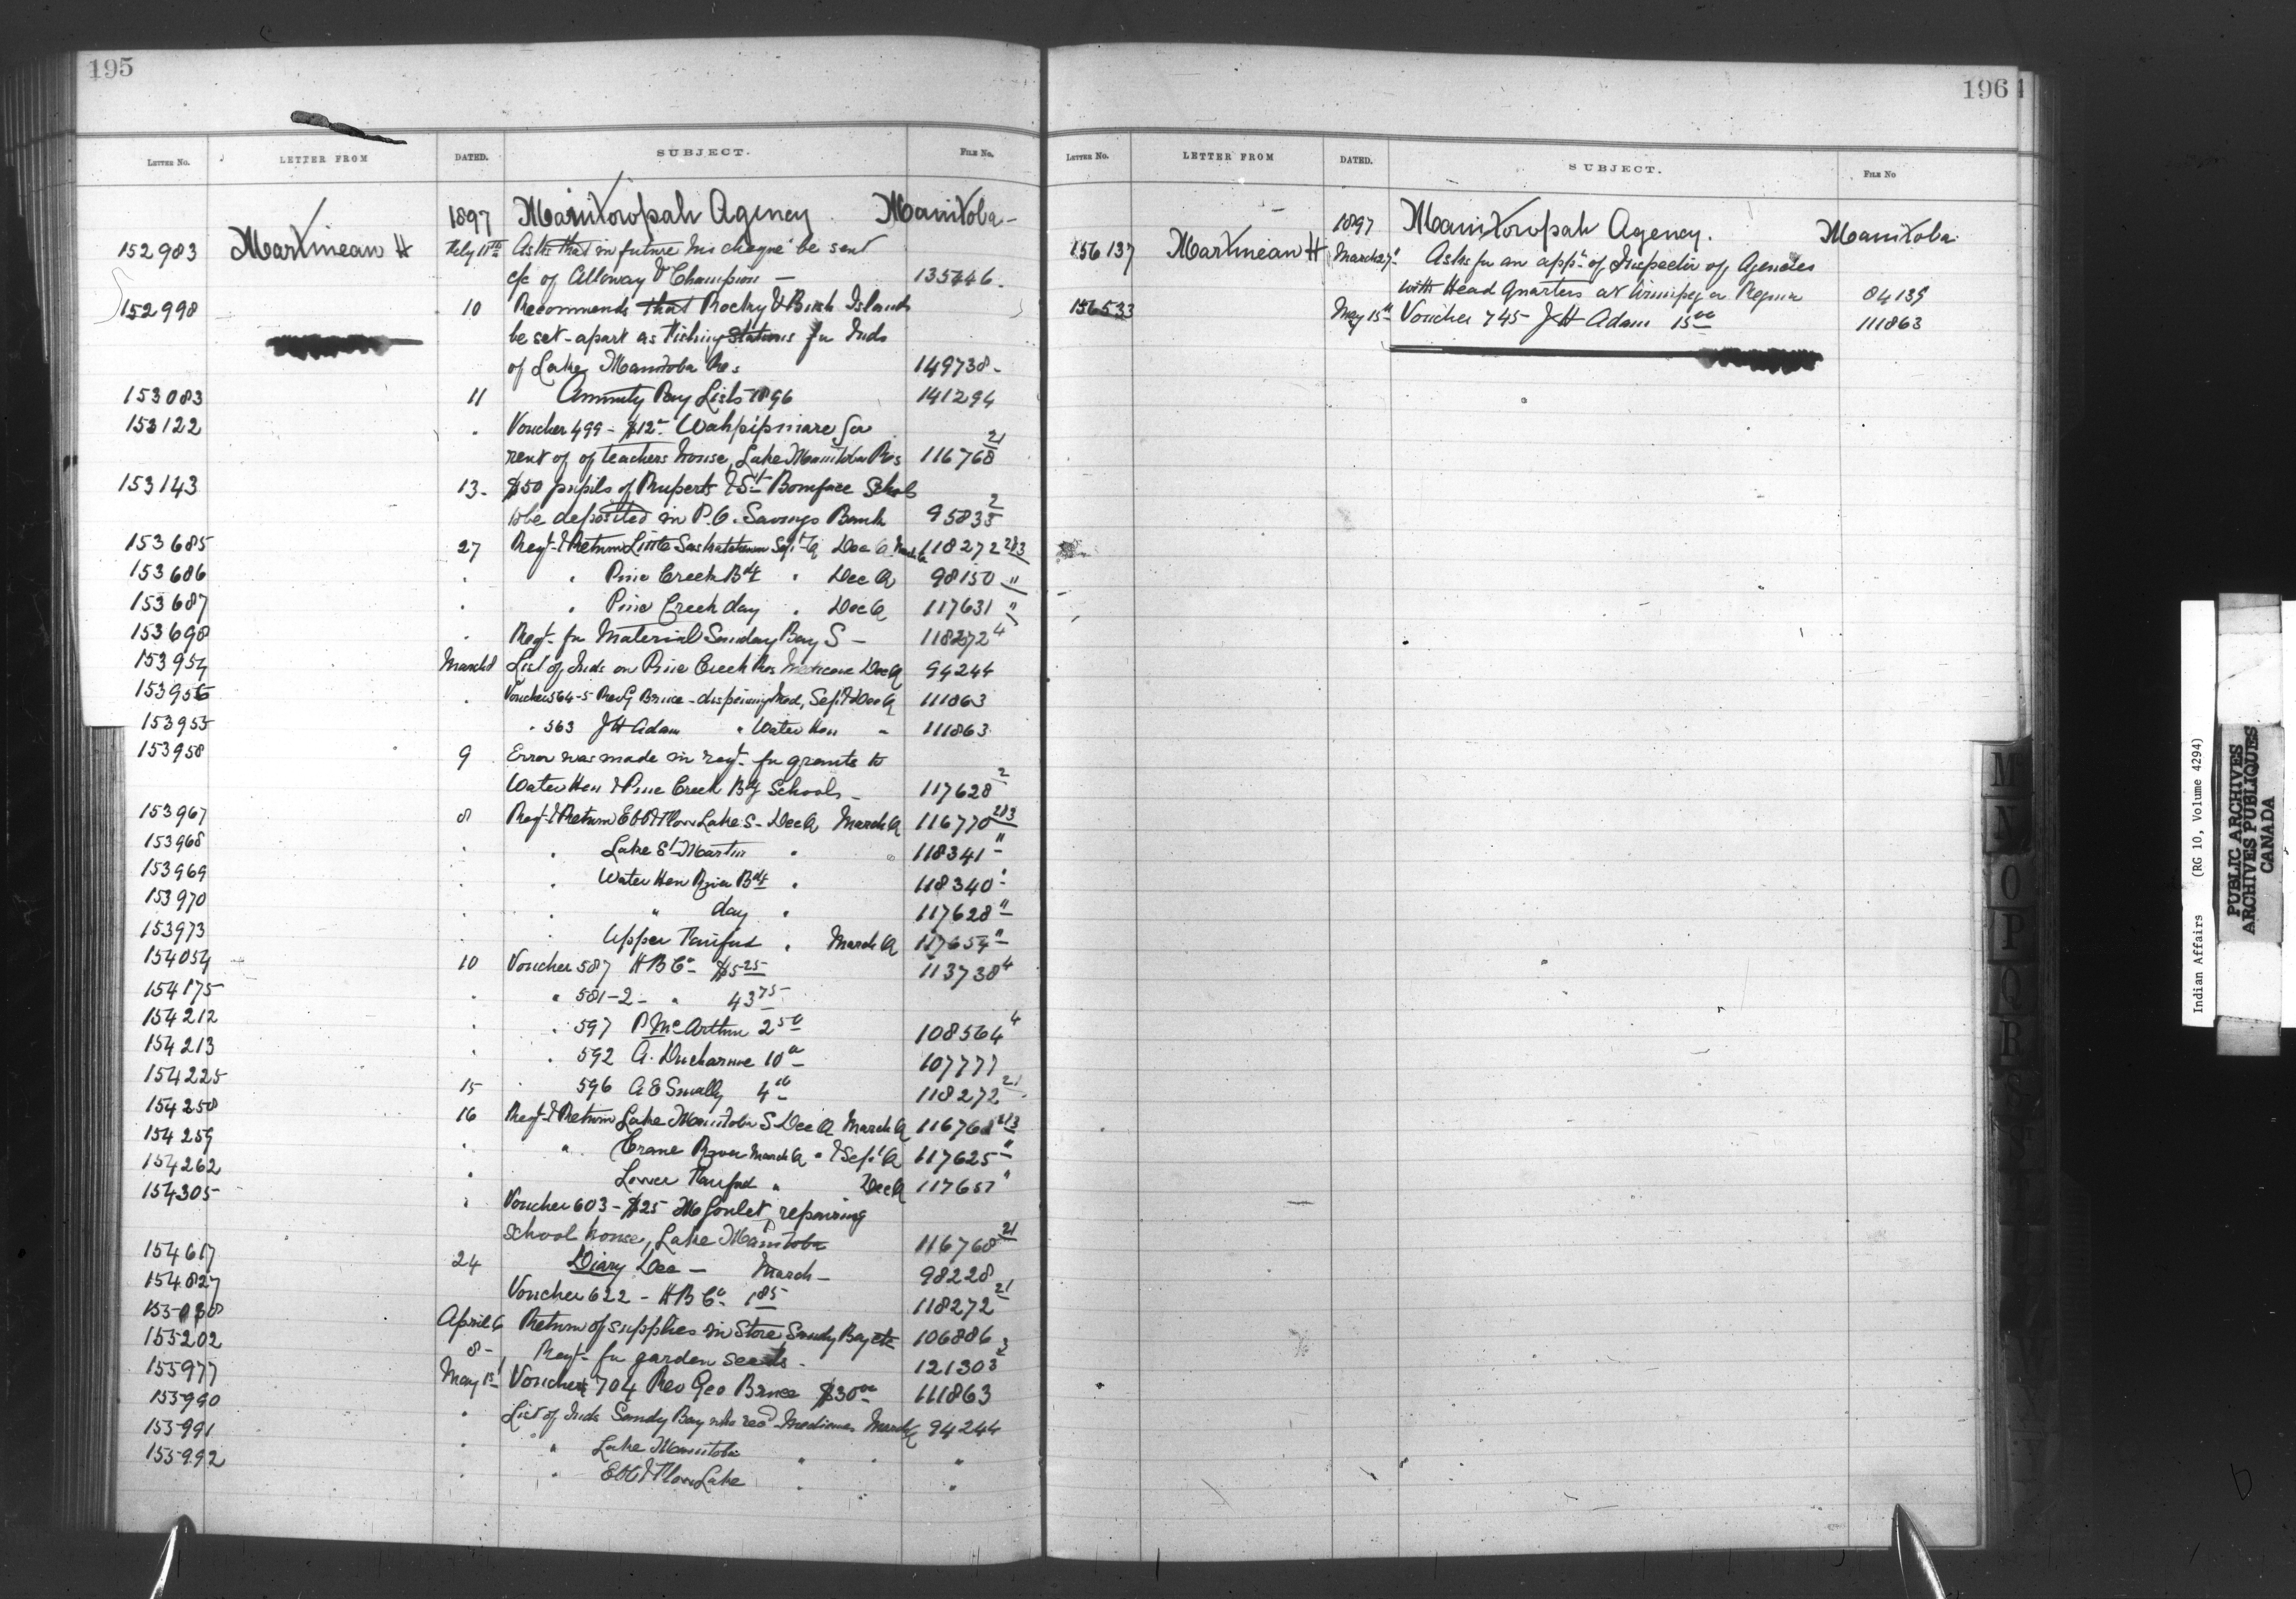 195
LETTER No. LETTER FROM DATED. SUBJECT. FILE No.
1897 Manitowpah Agency Manitoba-
152983 Martineau H Feby 11th Asks that in future his cheque be sent
c/c of Alloway & Champion — 135446.
152998 10 Recommends that Rocky & Birch Islands
be set-apart as Fishing Stations for Inds
of Lake Manitoba Res 149738-
153083 11 Annuity Pay Lists 1896 141294
153122 " Voucher 499 - $12- Wahpipiniare for
rent of of teachers house, Lake Manitoba Res 116768 21
153143 13- $50 pupils of Ruperts & St Boniface Schools
to be deposited in P.O. Savings Bank 95833 2
153685 27 Reqt & Return Little Saskatchewan Sept Q Dec Q March Q 118272 2/3
153686 " " Pine Creek Bdg " Dec Q 98150 "
153687 " " Pine Creek day " Dec Q 117631 "
153698 " Reqt for Material Sanday Bay S - 118272 4
153954 March 8 List of Inds on Pine Creek Res Medicine Dec Q 94244
153956 " Voucher 564-5 Rev G Bruce - dispensing Med, Sept & Dec Q 111863
153955 " 563 J H Adam " Water Hen " 111863
153958 9 Error was made in reqt for grants to
Water Hen & Pine Creek Bdg Schools - 117628 2
153967 8 Reqt & Return Ebb & Flow Lake S- Dec Q March Q 116770 2/3
153968 " " Lake St Martin " " 118341 "
153969 " " Water Hen River Bdg " 118340 "
153970 " " " day " 117628 "
153973 " " Upper Fairford " March Q 117654 "
154054 10 Voucher 587 H B Co- $5 25 113738 4
154175 " " 581-2- " 43 75
154212 " " 597 P McArthur 2 50 108564 4
154213 " " 592 A. Ducharme 10 00 107777
154225 15 " 596 A E Smally 4 00 118272 21
154258 16 Reqt & Return Lake Manitoba S Dec Q March Q 116768 2/3
154259 " " Crane River March Q " & Sept Q 117625 "
154262 " Lower Fairford " Dec Q 117657 "
154305 " Voucher 603 - $25 M Goulet, repairing
school house, Lake Manitoba 116768 21
154617 24 Diary Dec - March - 98228
154827 Voucher 622 - H B Co- 1 85 118272 21
155030 April 6 Return of supplies in Store Sandy Bay etc 106886
155202 8 - Reqt for garden seeds - 121303 3
155977 May 1st Voucher 704 Rev Geo Bruce $30 00 111863
155990 " List of Inds Sandy Bay who recd Medicines March Q 94244
155991 " " Lake Manitoba " " "
155992 " " Ebb & Flow Lake " "
196
LETTER No. LETTER FROM DATED. SUBJECT. FILE No
1897 Manitowpah Agency. Manitoba
156137 Martineau H March 27th Asks for an appt of Inspector of Agencies
with Head Quarters at Winnipeg or Regina 84139
156533 May 15th Voucher 745 J H Adam 15 00 111863
M
N
O
P
Q
R
S
Indian Affairs (RG 10, Volume 4294)
PUBLIC ARCHIVES
ARCHIVES PUBLIQUES
CANADA